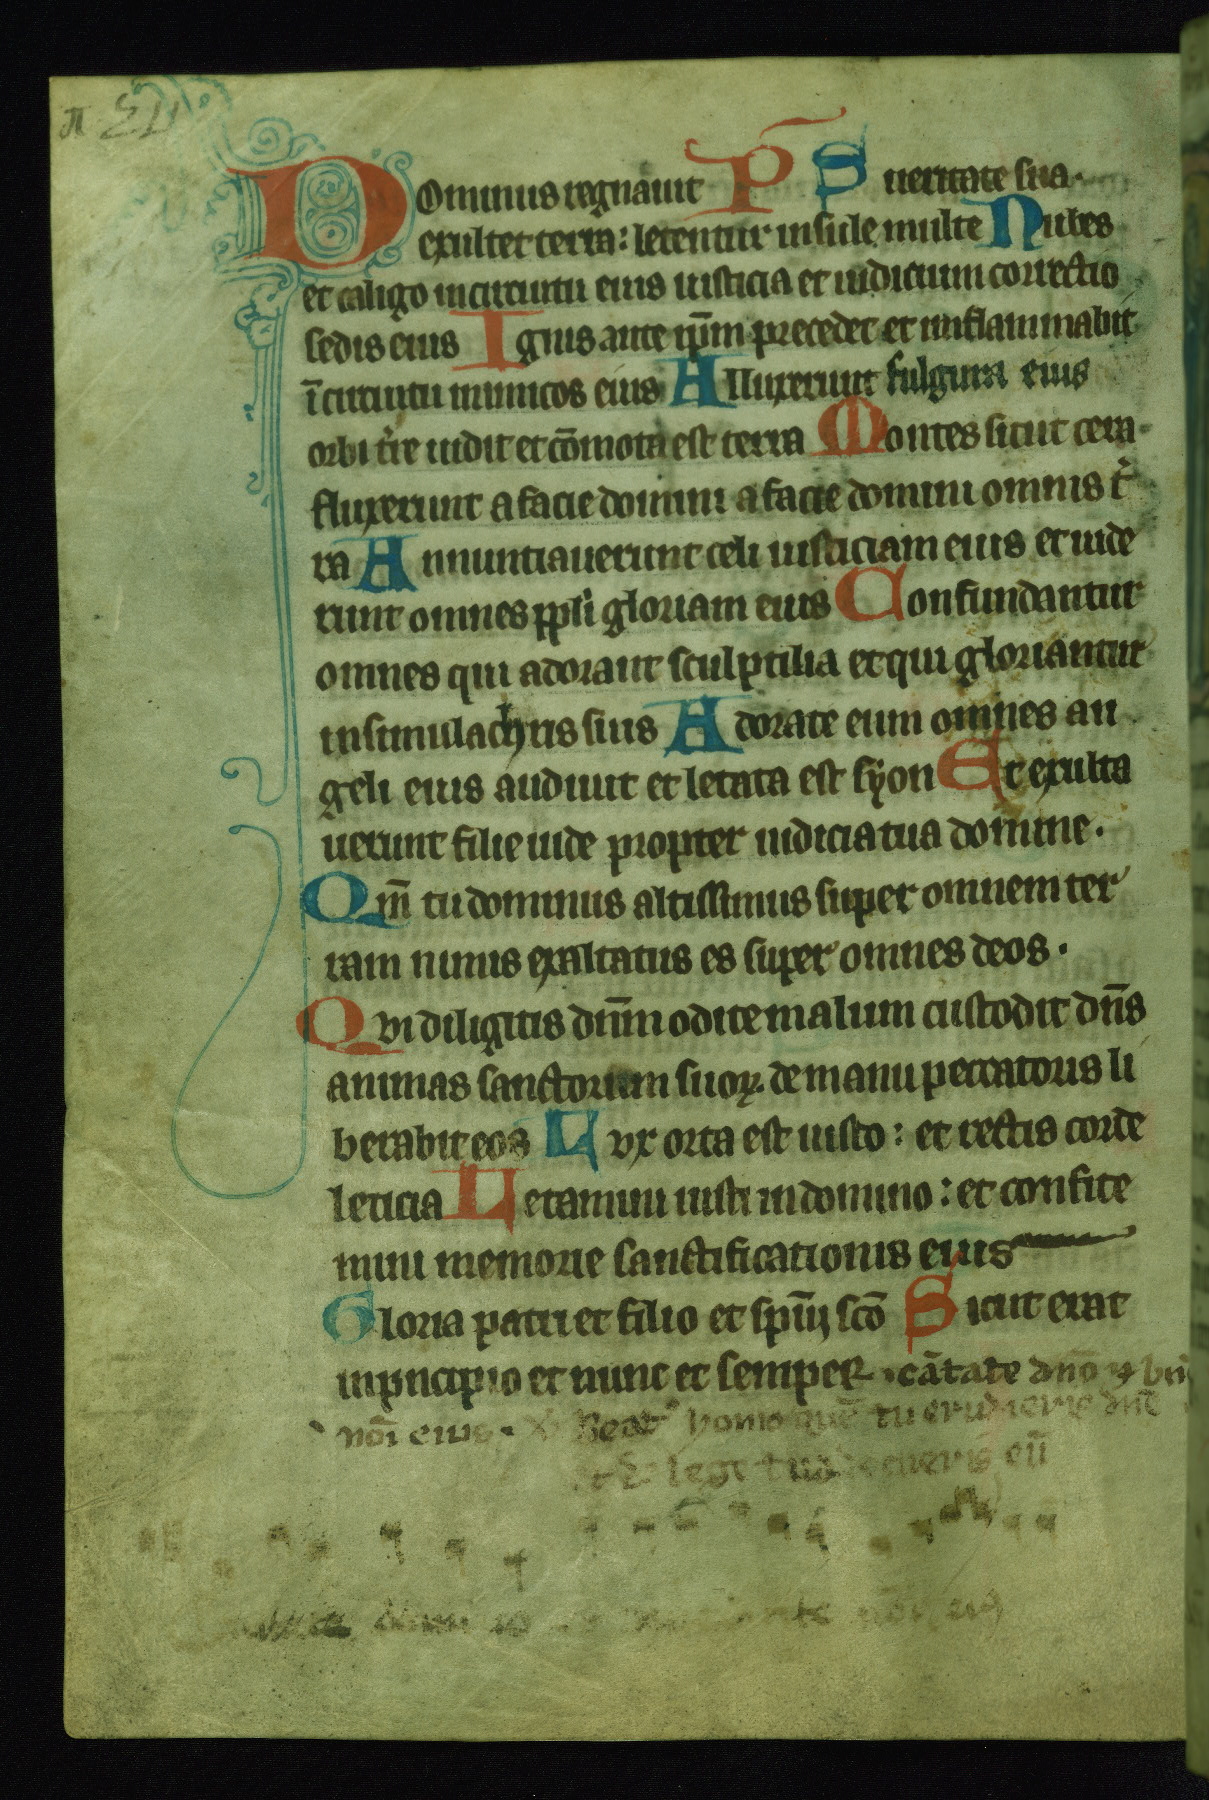 Dominus regnauit PS ueritate sua.
exultet terra: letentur insule multe Nubes
et caligo in circuitu eius iusticia et iudicium correctio
sedis eius Ignis ante ip̅m precedet et inflammabit
ī circuitu inimicos eius Alluxerunt fulgura eius
orbi tr̄e uidit et cōmota est terra Montes sicut cera
fluxerunt a facie domini a facie domini omnis t̄
ra Annuntiauerunt celi iusticiam eius et uide
runt omnes ppl̄i gloriam eius Confundantur
omnes qui adorant sculptilia et qui gloriantur
in simulachris suis Adorate eum omnes an
geli eius audiuit et letata est syon Et exulta
uerunt filie iude propter iudicia tua domine.
Qm̅ tu dominus altissimus super omnem ter
ram nimis exaltatus es super omnes deos.
Qvi diligitis dn̄m odite malum custodit dn̄s
animas sanctorum suoꝝ. de manu peccatoris li
berabit eos Lvx orta est iusto: et rectis corde
leticia Letamini iusti in domino: et confite
mini memorie sanctificationis eius
Gloria patri et filio et sp̄ui sc̄o Sicut erat
in principio et nunc et semper. cātate dn̄o
nōi eius. homo quē tu erudieris dn̄e
lege tua eū